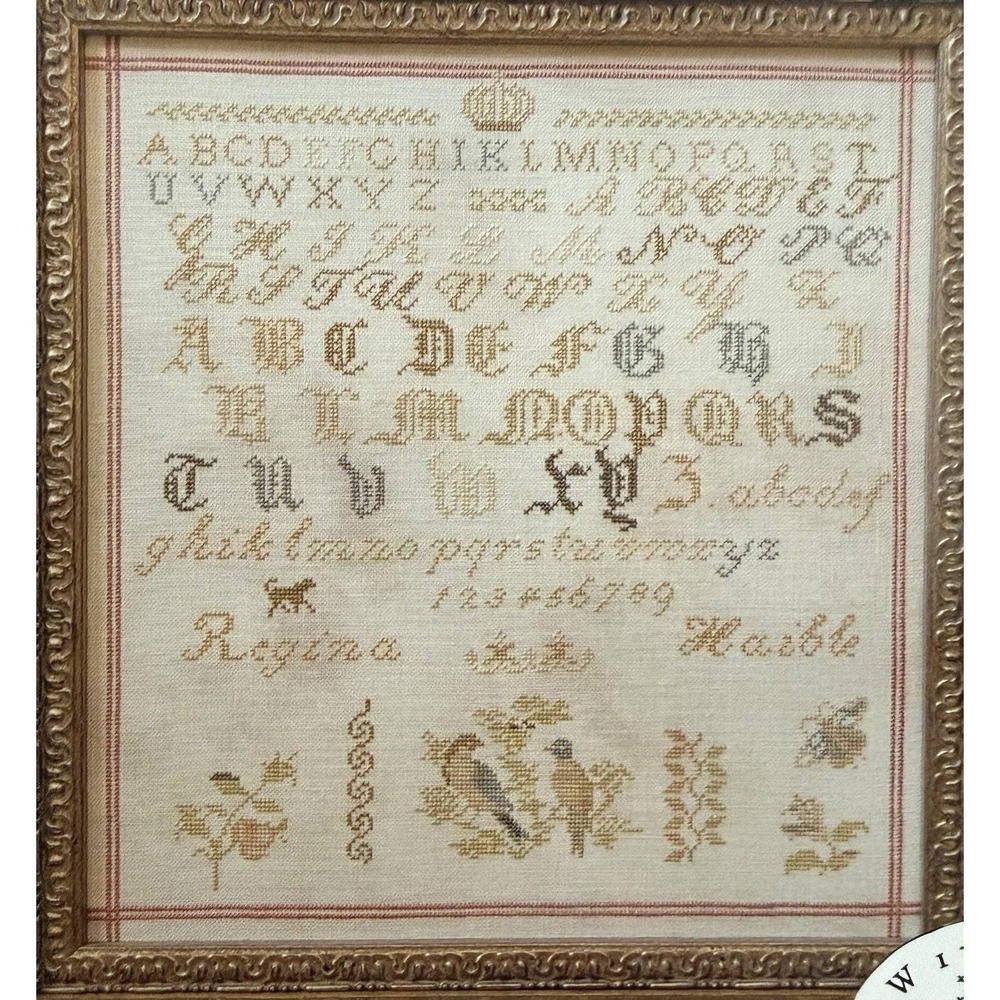 A B C D E F G H I K L M N O P Q R S T
U V W X Y Z A B C D E F
G H I K L M N O P Q
R S T U V W X Y Z
A B C D E F G H I
K L M N O P Q R S
T U V W X Y Z . a b c d e f
g h i k l m n o p q r s t u v w x y z
1 2 3 4 5 6 7 8 9
Regina Haible
W I